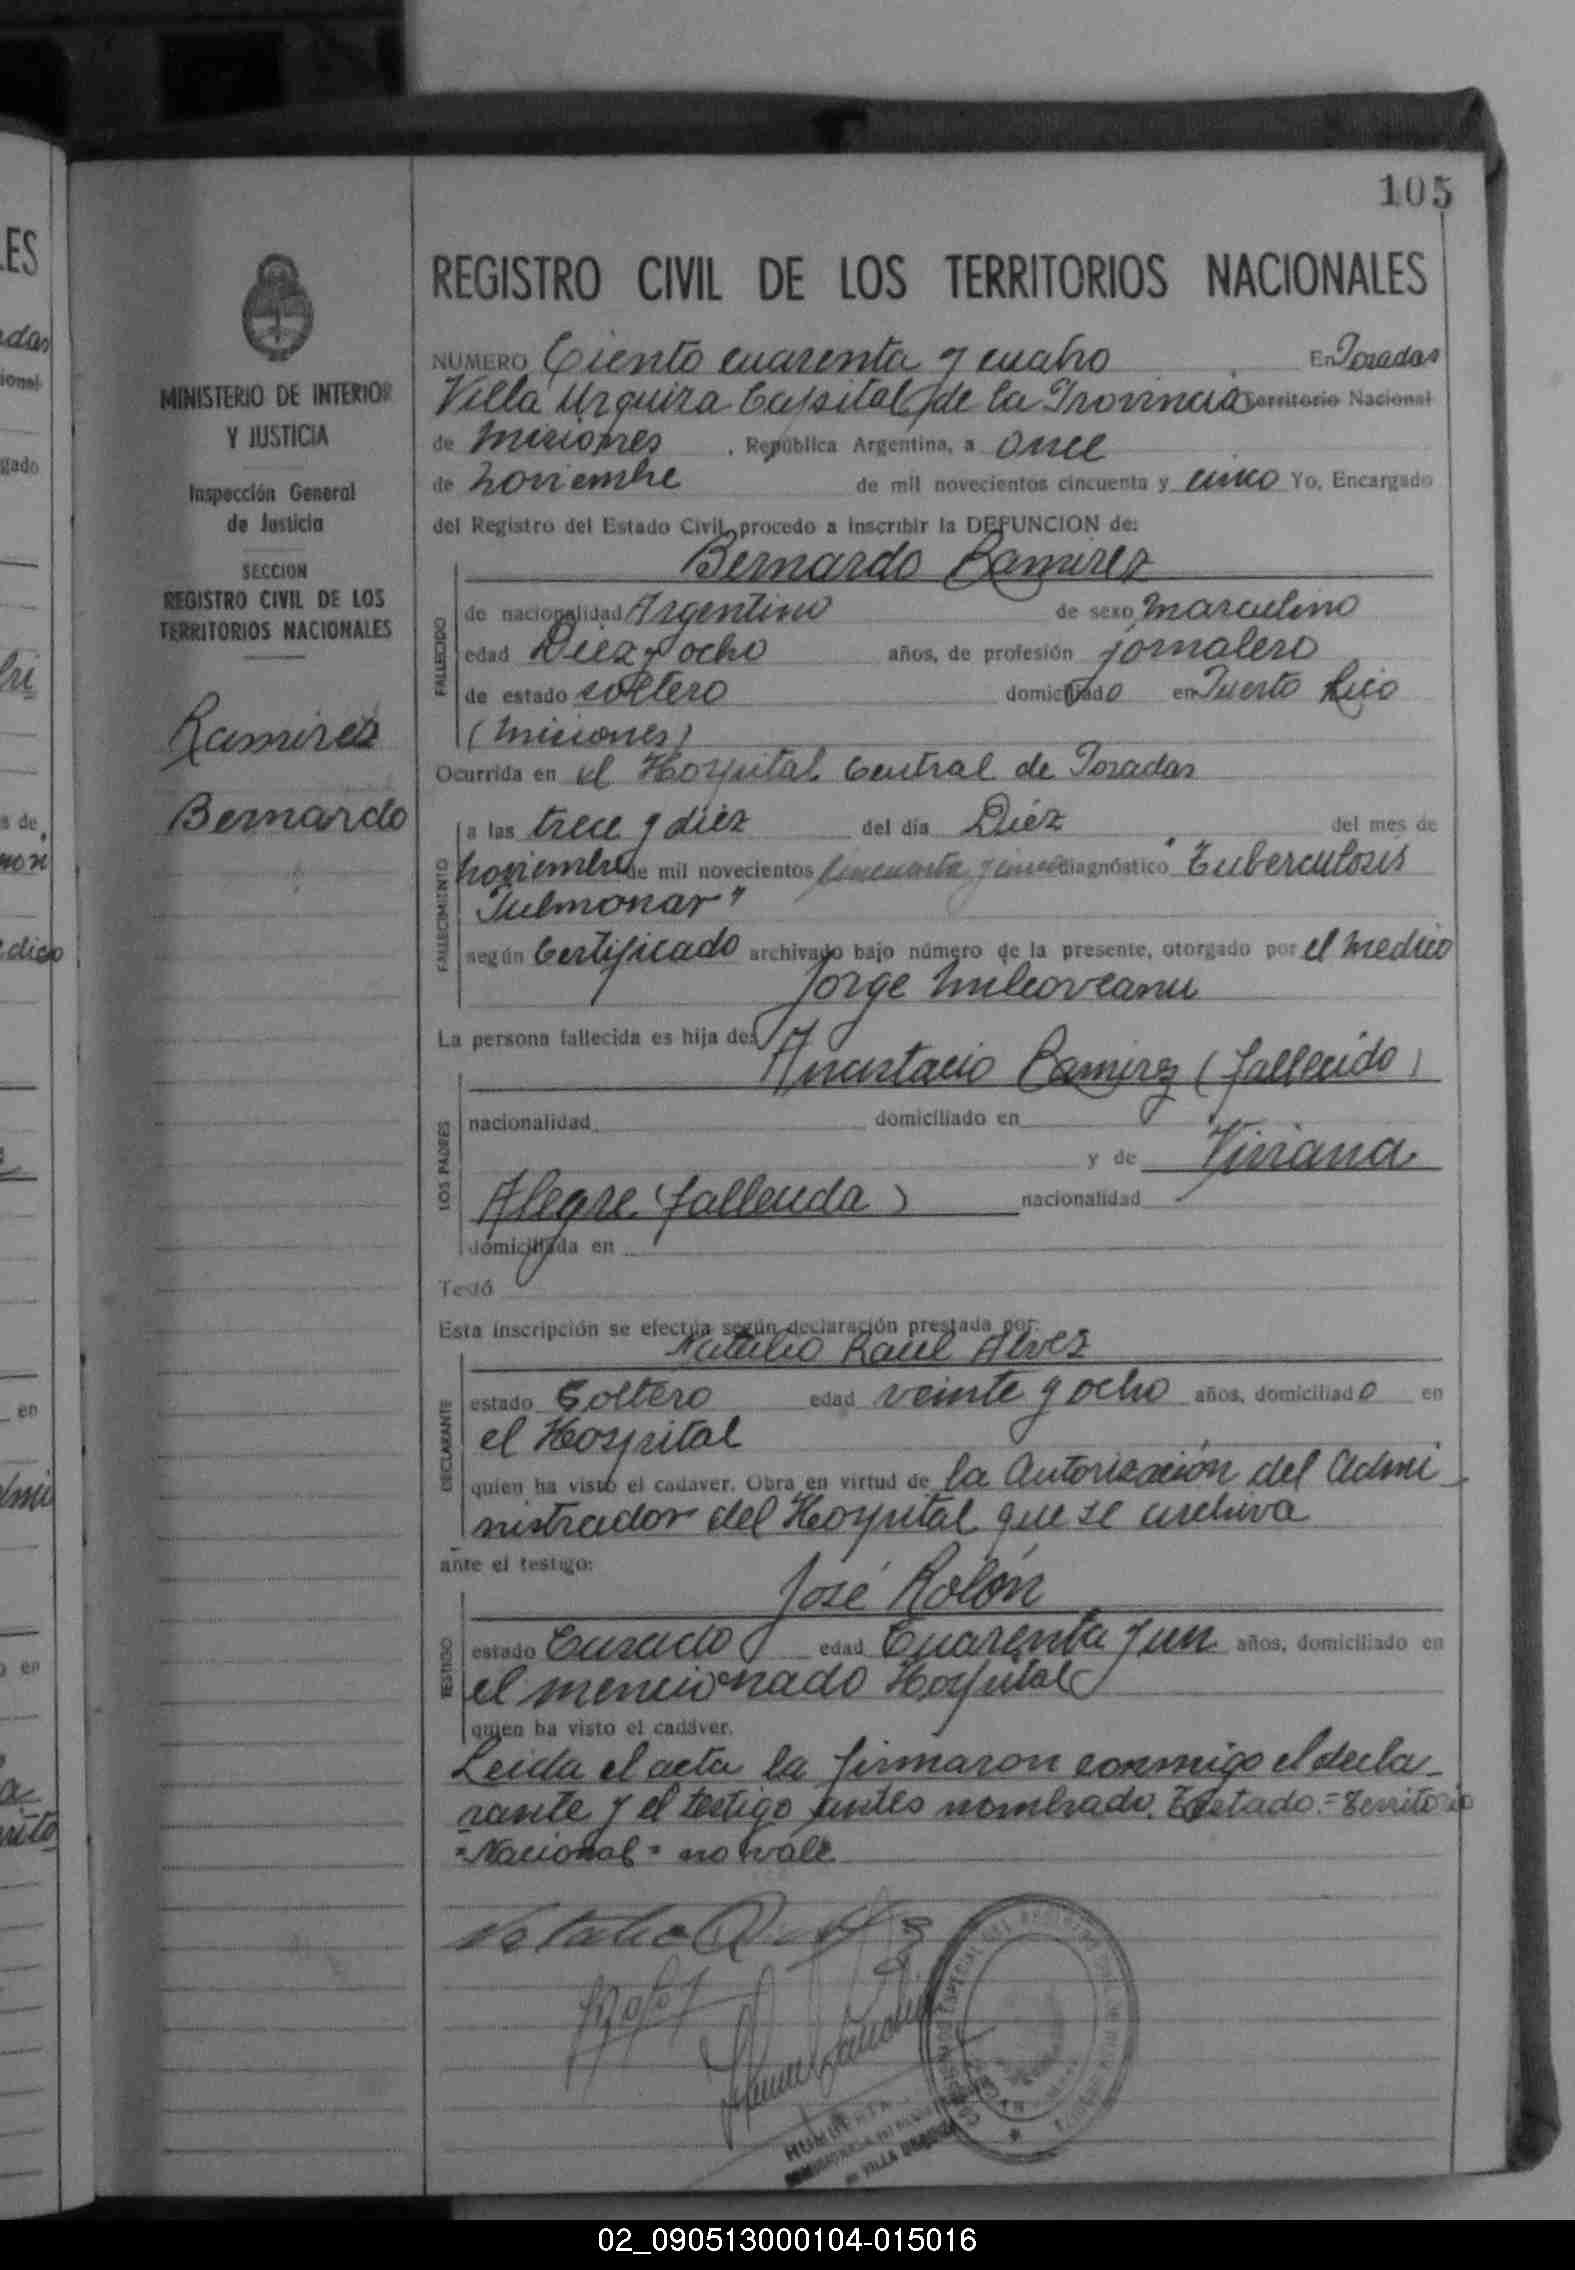 105
REGISTRO CIVIL DE LOS TERRITORIOS NACIONALES
MINISTERIO DE INTERIOR
Y JUSTICIA
Inspección General
de Justicia
SECCION
REGISTRO CIVIL DE LOS
TERRITORIOS NACIONALES
Ramirez
Bernardo
NUMERO Ciento cuarenta y cuatro En Posadas
Villa Urquiza Capital de la Provincia Territorio Nacional
de Misiones, República Argentina, a once
de noviembre de mil novecientos cincuenta y cinco Yo, Encargado
del Registro del Estado Civil, procedo a inscribir la DEFUNCION de:
Bernardo Ramirez
FALLECIDO
de nacionalidad Argentino de sexo masculino
edad Diez y ocho años, de profesión jornalero
de estado soltero domiciliado en Puerto Rico
(Misiones)
Ocurrida en el Hospital Central de Posadas
FALLECIMIENTO
a las trece y diez del día Diéz del mes de
noviembre de mil novecientos cincuenta y cinco diagnóstico "Tuberculosis
Pulmonar"
según Certificado archivado bajo número de la presente, otorgado por el medico
Jorge Milcoveanu
La persona fallecida es hija de:
LOS PADRES
Anastacio Ramirez (fallecido)
nacionalidad domiciliado en
y de Viviana
Alegre (fallecida) nacionalidad
domiciliada en
Testó
Esta inscripción se efectúa según declaración prestada por:
DECLARANTE
Natalio Raul Alvez
estado Soltero edad veinte y ocho años, domiciliado en
el Hospital
quien ha visto el cadaver. Obra en virtud de la Autorización del Admi
nistrador del Hospital que se archiva
ante el testigo:
TESTIGO
José Rolón
estado Casado edad Cuarenta y un años, domiciliado en
el mencionado Hospital
quien ha visto el cadáver.
Leida el acta la firmaron conmigo el decla-
rante y el testigo antes nombrado. Testado = Territorio
"Nacional" no vale
VILLA URQUIZA
02_090513000104-015016